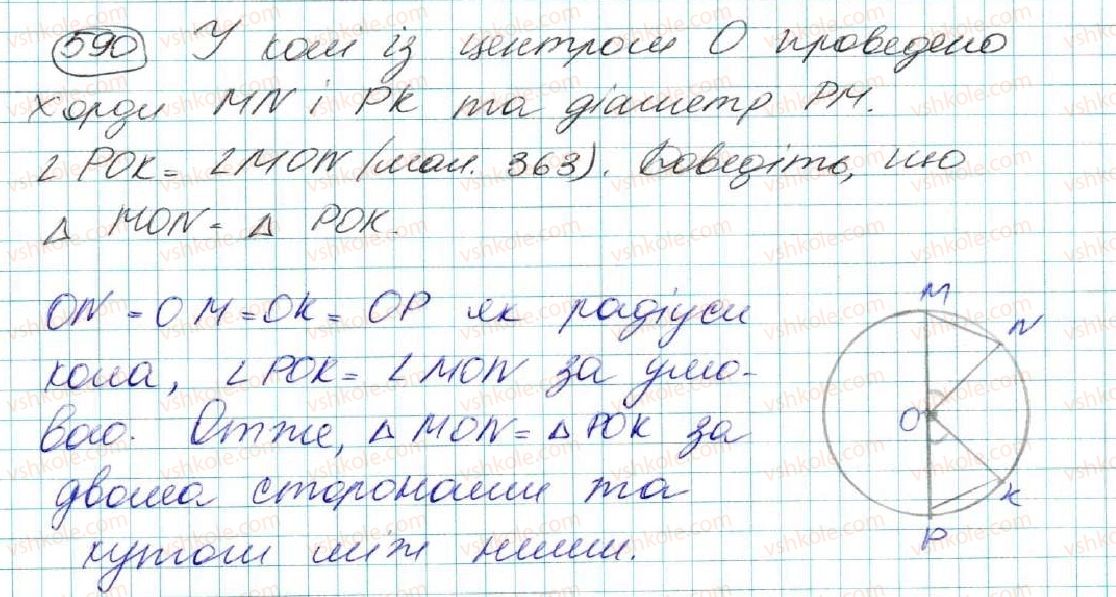 590 У колі із центром О проведено
хорди MN і PK та діаметр PM.
∠ POK = ∠ MON (мал. 363). Доведіть, що
△ MON = △ POK.
ON = OM = OK = OP як радіуси
кола, ∠ POK = ∠ MON за умо-
вою. Отже, △ MON = △ POK за
двома сторонами та
кутом між ними.
M
N
O
K
P
vshkole.com